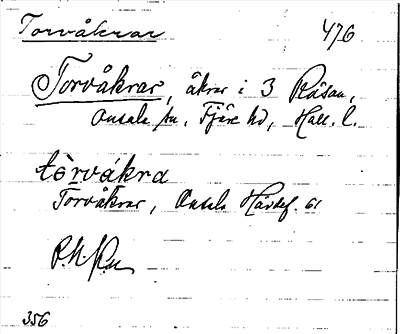 Torvåkrar 476
Torvåkrar, åkrar i 3 Råsan,
Onsala sn, Fjäre hd, Hall. l.
tòrvákra
Torvåkrar, Onsala Hávdef. 61
356